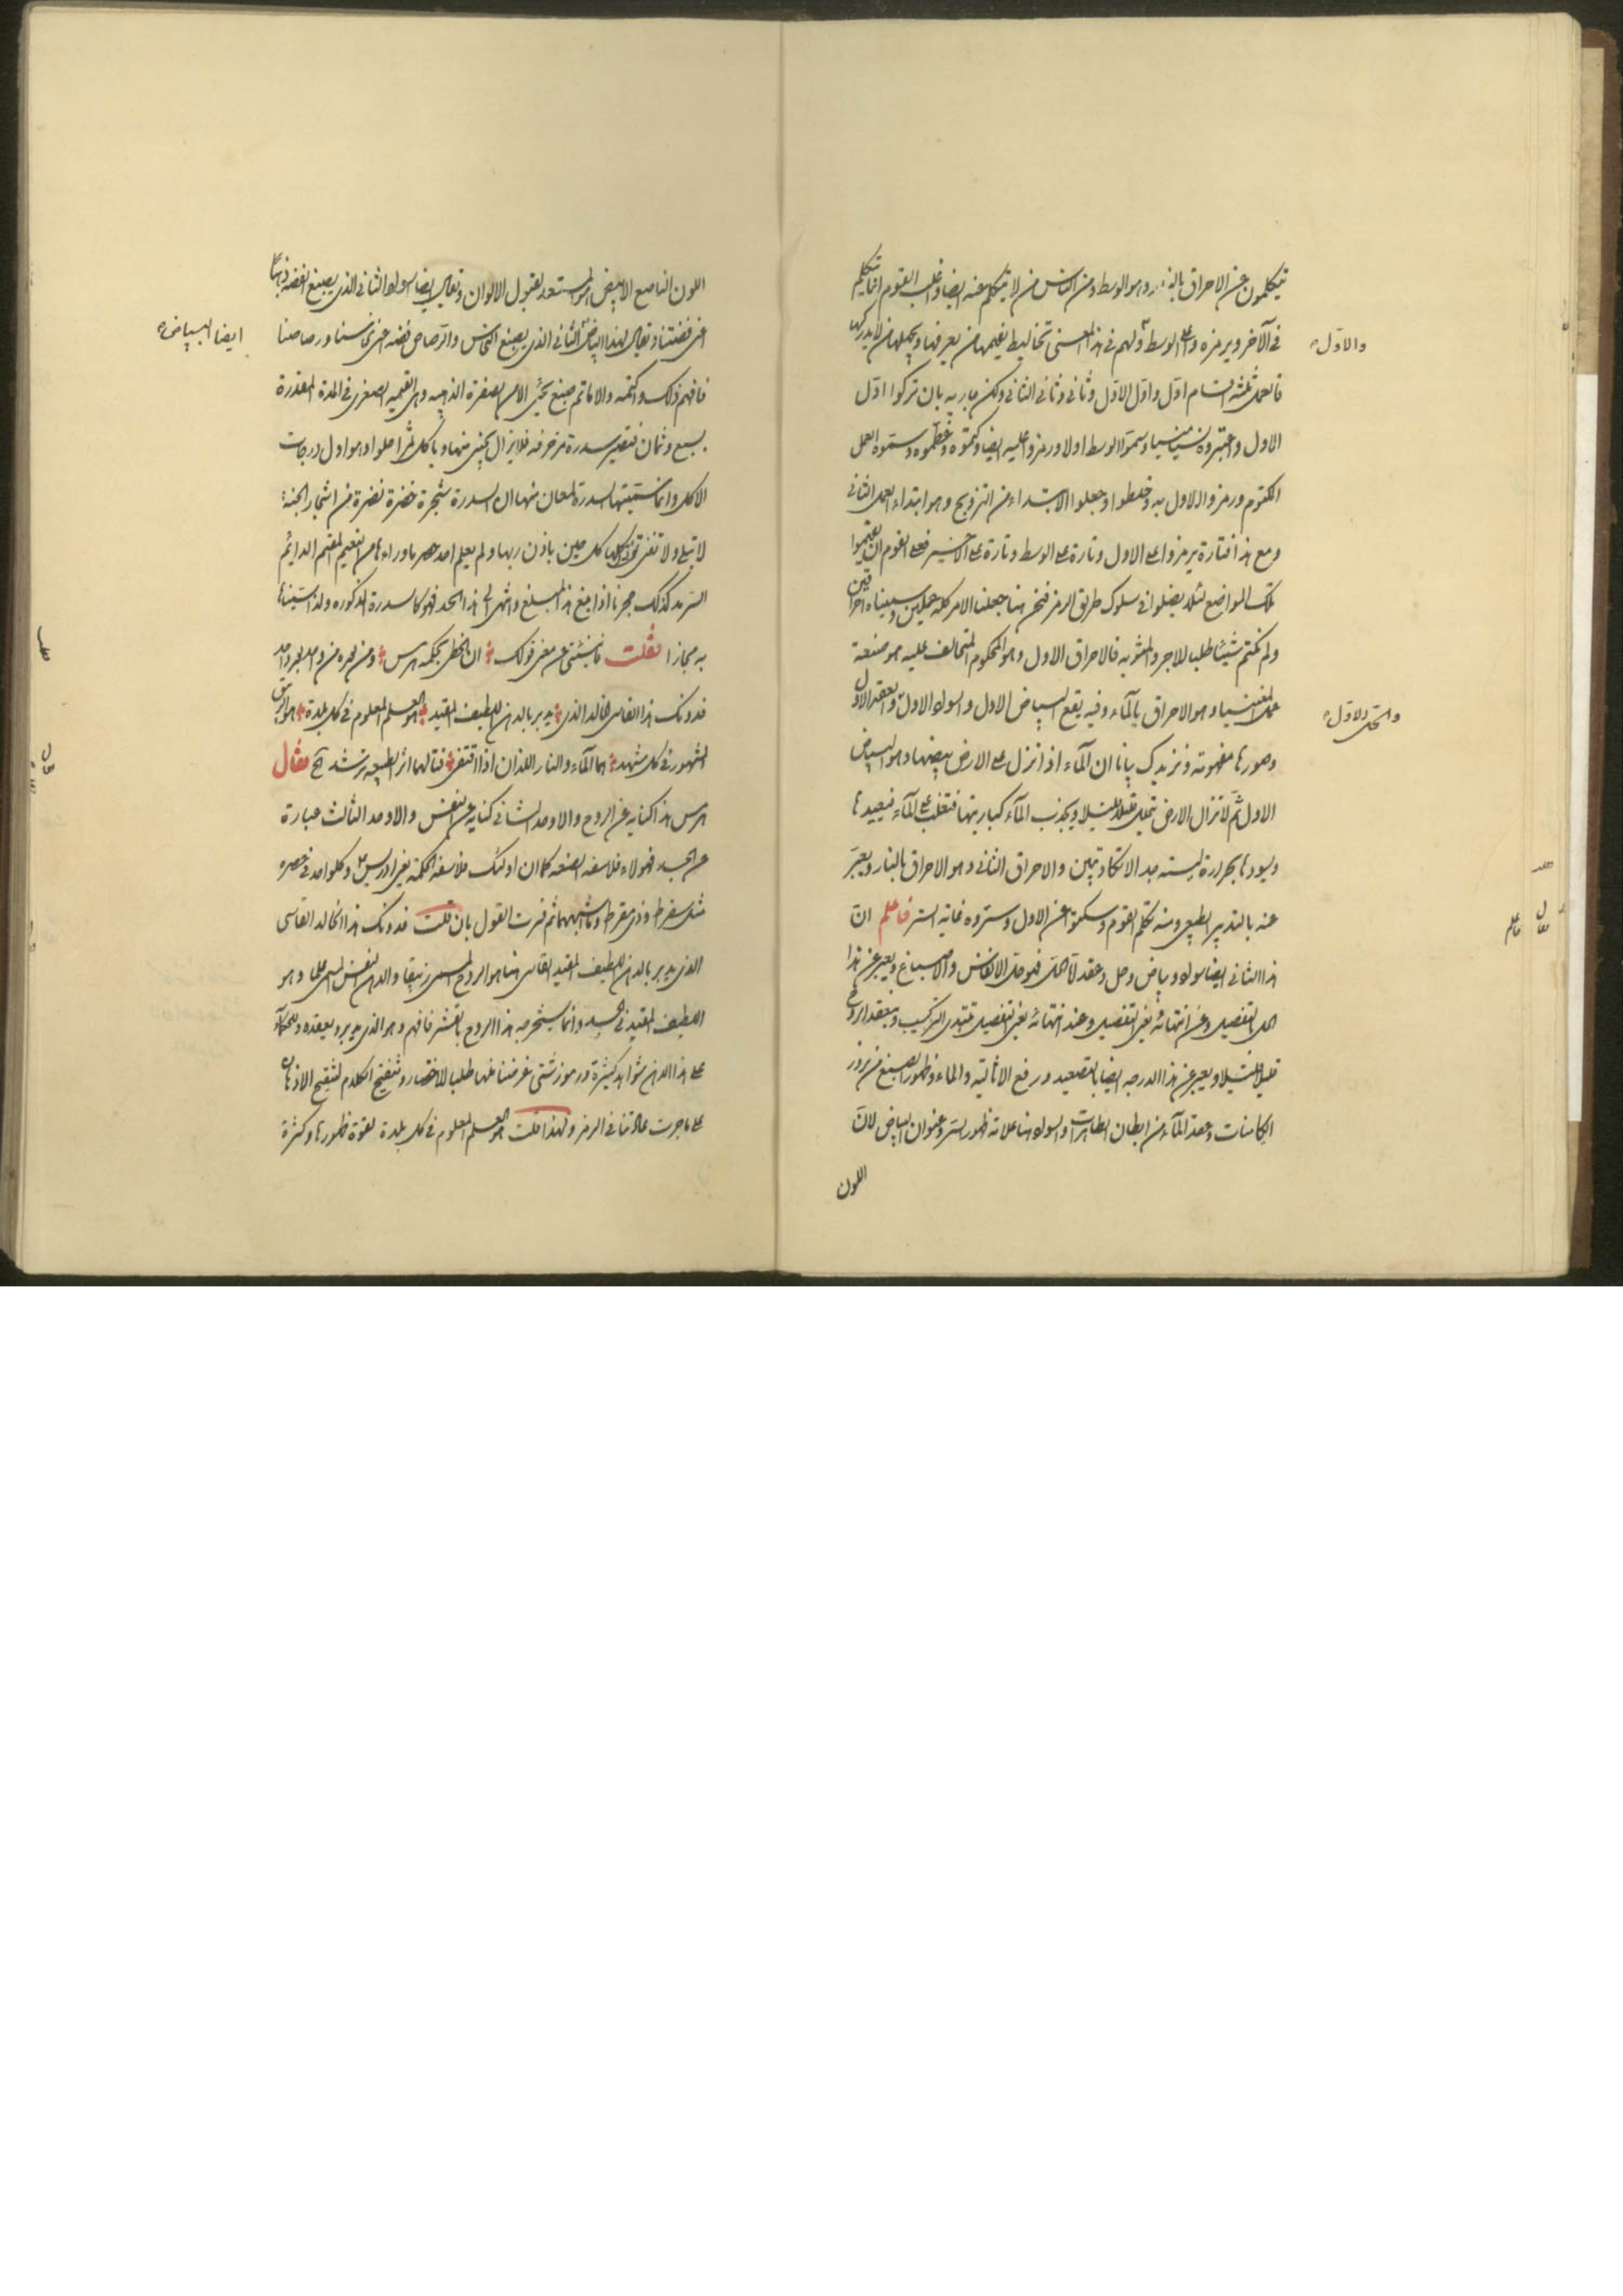 يتكلمون عن الاحراق بالنار وهو الوسط ومن الناس من لا يتكلم عنه ايضا واغلب القوم انما يتكلم
في الآخر ويرمزه وعلى الوسط ولهم في هذا المعنى تخاليط يفهمها من يعرفها ويجهلها من لا يدركها
والاول
فالعمل ثلثة اقسام اول واول الاول وثاني وثاني الثاني ولكن بان تركوا اول
الاول واعتبروه نسيا منسيا وسموا الوسط اولا ورمزوا عليه ايضا وكتموه وعظموه وسموه العمل
المكتوم ورمزوا الاول به وخلطوا وجعلوا الابتداء من التزويج وهو ابتداء العمل الثاني
ومع هذا فتارة يرمزوا على الاول وتارة على الوسط وتارة على الاخير فعلى القوم ان يفهموا
تلك المواضع لئلا يضلوا في سلوك طريق الرمز فنحن هنا جعلنا الامر كله عملين وسميناه احراقين
ولم نكتم شيئا طلبا للاجر والمثوبه فالاحراق الاول وهو المكتوم المتحالف عليه هو صنعة
عمل المغنيسيا وهو الاحراق بالماء وفيه يقع البياض الاول والسواد الاول والعقد الاول
والحل الاول
وصورها مفهومة ونزيدك بيانا ان الماء اذا نزل على الارض بيضها وهو البياض
الاول ثم لا تزال الارض تحيله قليلا قليلا ويجذب الماء كباريتها فتغلب على الماء فيعيدها
ويسودها بحرارة لينه جدا لا تكاد تبين والاحراق الثاني وهو الاحراق بالنار ويعبر
عنه بالتدبير الطبيعي ومنه تكلم القوم وسكتوا عن الاول وستروه غاية الستر فاعلم ان
هذا الثاني ايضا سواد وبياض وحل وعقد اما الحل فهو حل الانفاس والاصباغ ويعبر عن هذا
الحل بالتفصيل وعن انتهائه بغير التفصيل وعند انتهائه بغير التفصيل تبتدي التركيب وينعقد الروح
قليلا قليلا ويعبر عن هذا الدرجه ايضا بالتصعيد ورفع الاثاليه والماء وظهور الصبغ من بزور
الكامنات وعقد الماء من ابطان الطاهرات والسواد هنا علامة ظهور السر وعنوان البياض لان
اللون
اللون الناصع الابيض هو المستعد لقبول الالوان ويقال ايضا السواد الثاني الذي يصبغ الفضه ذهبا
اعني فضتنا ويقال لهذا البياض الثاني الذي يصبغ النحاس والرصاص فضه اعني نحاسنا ورصاصنا
ايضا البياض
فافهم ذلك واكتمه والا ما تم صبغ يجي الا من الصفرة الذهبيه وهي القيمه الصغرى في المدة المقدرة
بسبع وثمان فتصير سدرة مزخرفه فلا يزال يجني منها وياكل ثمرا حلوا وهو اول درجات
الاكل وانما شبهتها بالسدرة لمعان منها ان السدرة شجرة خضرة نضرة من اشجار الجنة
لا تبلى ولا تفنى تؤتي اكلها كل حين باذن ربها ولم يعلم احد حصر ما وراءها من النعيم المقيم الدائم
السرمد كذلك حجرنا اذا بلغ هذا المبلغ وانتهى الى هذا الحد فهو كالسدرة المذكوره ولذا سميناها
به مجازا فقلت فانبئني عن معنى قولك ان تحظى بحكمه هرمس ومن بحره من واحد بحر واحد
فدونك هذا القاسي الخالد الذي يدبر بالدهن اللطيف المقيد هو العلم المعلوم في كل بلدة هو البرق
المشهور في كل مشهد هما الماء والنار اللذان اذا اقتفى فتى لهما اثر الطبيعه يرشد الخ فقال
هرمس هذا كنايه عن الروح والاوحد الثاني كنايه عن النفس والاوحد الثالث عبارة
عن الجسد فهولاء فلاسفه الصنعه كما ان اولئك فلاسفة الحكمه يعني ادريس وكل واحد في عصره
مثل سقراط وذي مقراط وما اشبههما ثم فسرت القول بان قلت فدونك هذا الخالد القاسي
الذي يدبر بالدهن اللطيف المقيد القاسي هنا هو الروح المسمى زيبقا والدهن النفس المسمى علما وهو
اللطيف المقيد في الجسد وانما يستخرج به هذا الروح بالقشر فافهم وهو الذي يدبر ويعقده وللحكماء
على هذا الدهن شواهد كثيرة ورموز شتى غرضنا عنها طلبا للاختصار وتنقيح الكلام لتنقيح الاذهان
على ما جرت عادتنا في الرمز ولهذا قلت هو العلم المعلوم في كل بلدة لقوة ظهورها وكثرة